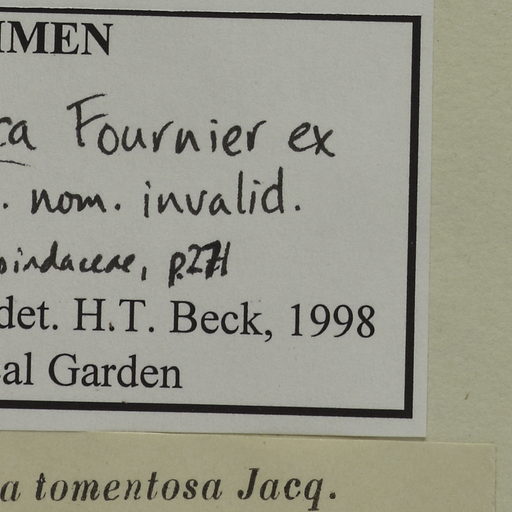 IMEN
ca Fournier ex
. nom. invalid.
indaceae, p.271
det. H.T. Beck, 1998
al Garden
a tomentosa Jacq.